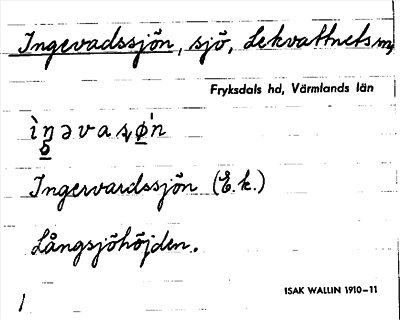 Ingevadssjön, sjö, Lekvattnets sn,
Fryksdals hd, Värmlands län
Ingervardssjön (E.k.)
Långsjöhöjden.
ISAK WALLIN 1910–11